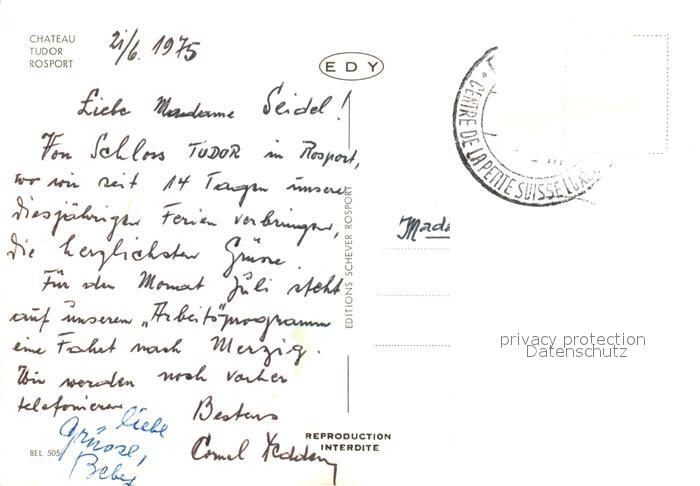 CHATEAU
TUDOR
ROSPORT
21/6. 1975
EDY
Liebe Madame Seidel!
Von Schloss TUDOR in Rosport,
wo wir seit 14 Tagen unsere
diesjährigen Ferien verbringen,
die herzlichsten Grüsse.
Für den Monat Juli steht
auf unserem „Arbeits"programm
eine Fahrt nach Merzig.
Wir werden noch vorher
telefonieren.
Bestens
liebe
Grüsse,
BEL 505
EDITIONS SCHEVER ROSPORT
REPRODUCTION
INTERDITE
CENTRE DE LA PETITE SUISSE LUX
Mada
privacy protection
Datenschutz